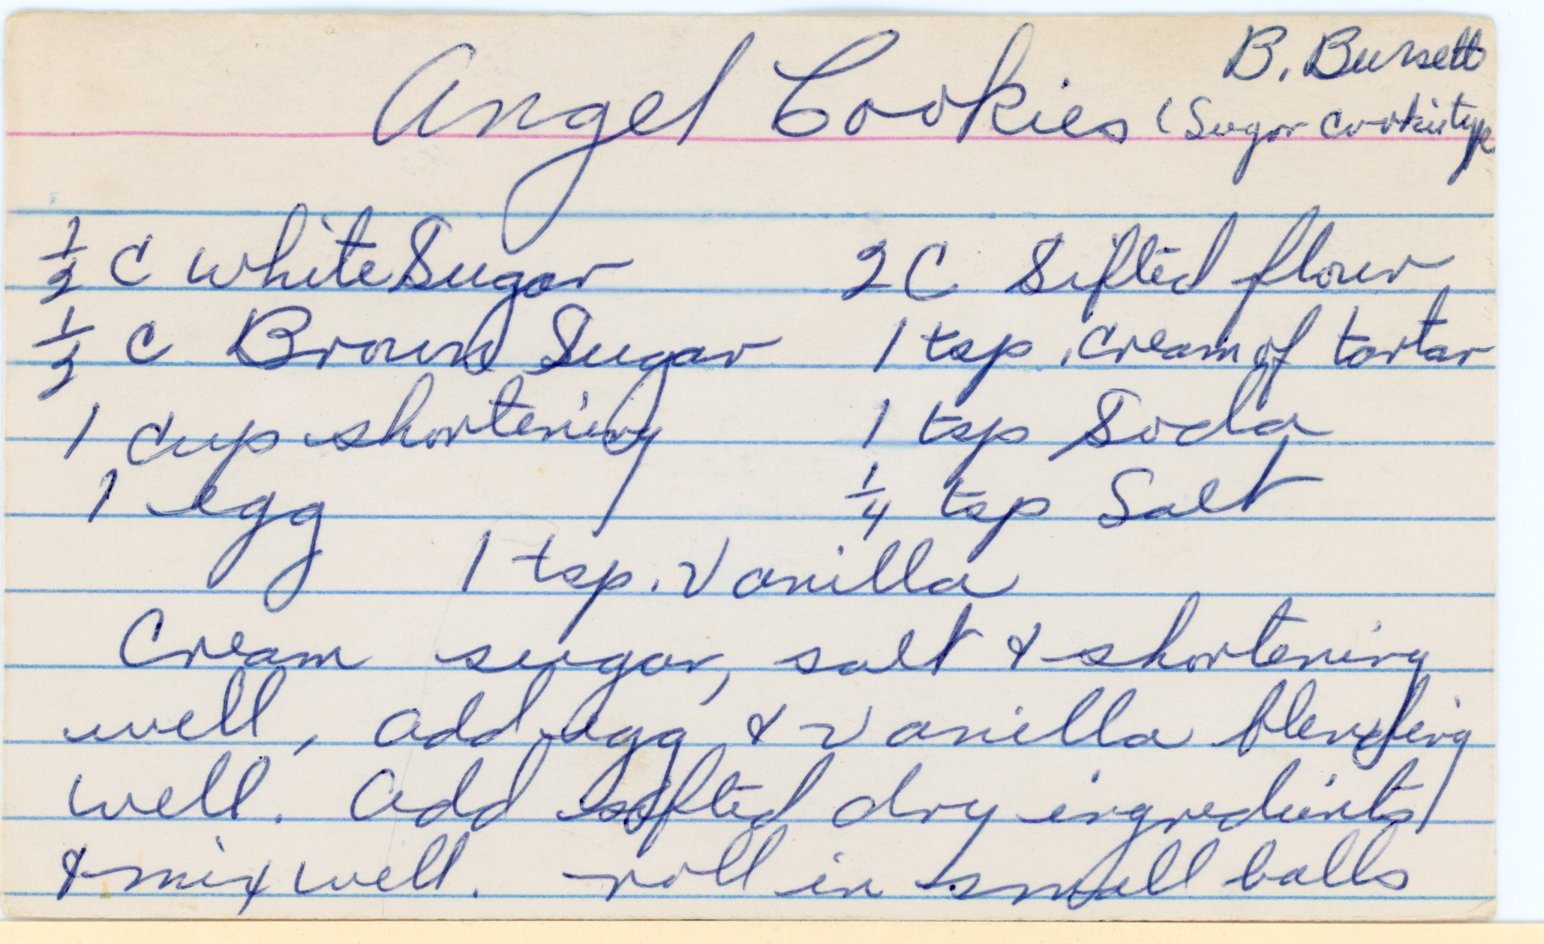 B. Bursett
Angel Cookies (Sugar cookie type
1/2 C white Sugar
1/2 C Brown Sugar
1 cup shortening
1 egg
2 C Sifted flour
1 tsp. cream of tartar
1 tsp Soda
1/4 tsp Salt
1 tsp. Vanilla
Cream sugar, salt & shortening
well, add egg & vanilla blending
well. Add sifted dry ingredients
& mix well. roll in small balls